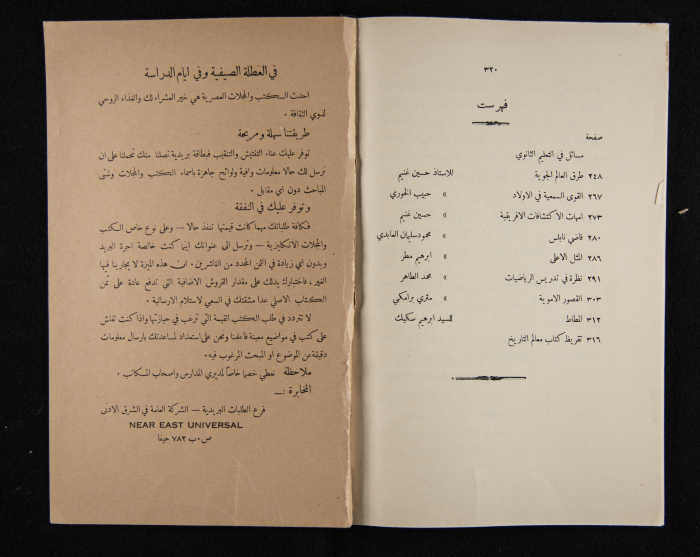 ٣٢٠
فهرست
صفحة
مسائل في التعليم الثانوي
٢٤٨ طرق العالم الجوية للاستاذ حسين غنيم
٢٦٧ القوى السمعية في الاولاد » حبيب الخوري
٢٧٣ امهات الاكتشافات الافريقية » حسين غنيم
٢٨٠ قاضي نابلس » محمود سليمان العابدي
٢٨٦ المثل الاعلى » ابرهيم مطر
٢٩١ نظرة في تدريس الرياضيات » محمد الطاهر
٣٠٣ القصور الاموية » متري برامكي
٣١٢ المطاط للسيد ابرهيم سكيك
٣١٦ تقريظ كتاب معالم التاريخ
في العطلة الصيفية وفي ايام الدراسة
احدث الكتب والمجلات العصرية هي خير العشراء لك والغذاء الروحي
لذوي الثقافة .
طريقتنا سهلة ومريحة
توفر عليك عناء التفتيش والتنقيب فبطاقة بريدية تصلنا منك تحملنا على ان
نرسل لك حالا معلومات وافية ولوائح جاهزة باسماء الكتب والمجلات وشتى
المباحث دون اي مقابل .
وتوفر عليك في النفقة
فكافة طلباتك مهما كانت قيمتها تنفذ حالا — وعلى نوع خاص الكتب
والمجلات الانكليزية — وترسل الى عنوانك اينما كنت خالصة اجرة البريد
وبدون اي زيادة في الثمن المحدد من الناشرين . ان هذه الميزة لا يجارينا فيها
الغير ، فاختبارك يدلك على مقدار القروش الاضافية التي تدفع عادة على ثمن
الكتاب الاصلي عدا مشقتك في السعي لاستلام الارسالية .
لا تتردد في طلب الكتب القيمة التي ترغب في حيازتها واذا كنت تفتش
على كتب في مواضيع معينة فاعلمنا ونحن على استعداد لمساعدتك بارسال معلومات
دقيقة عن الموضوع او المبحث المرغوب فيه .
ملاحظة نعطي خصما خاصا لمديري المدارس واصحاب المكاتب .
المخابرة :—
فرع الطلبات البريدية — الشركة العامة في الشرق الادنى
NEAR EAST UNIVERSAL
ص.ب ٧٨٢ حيفا